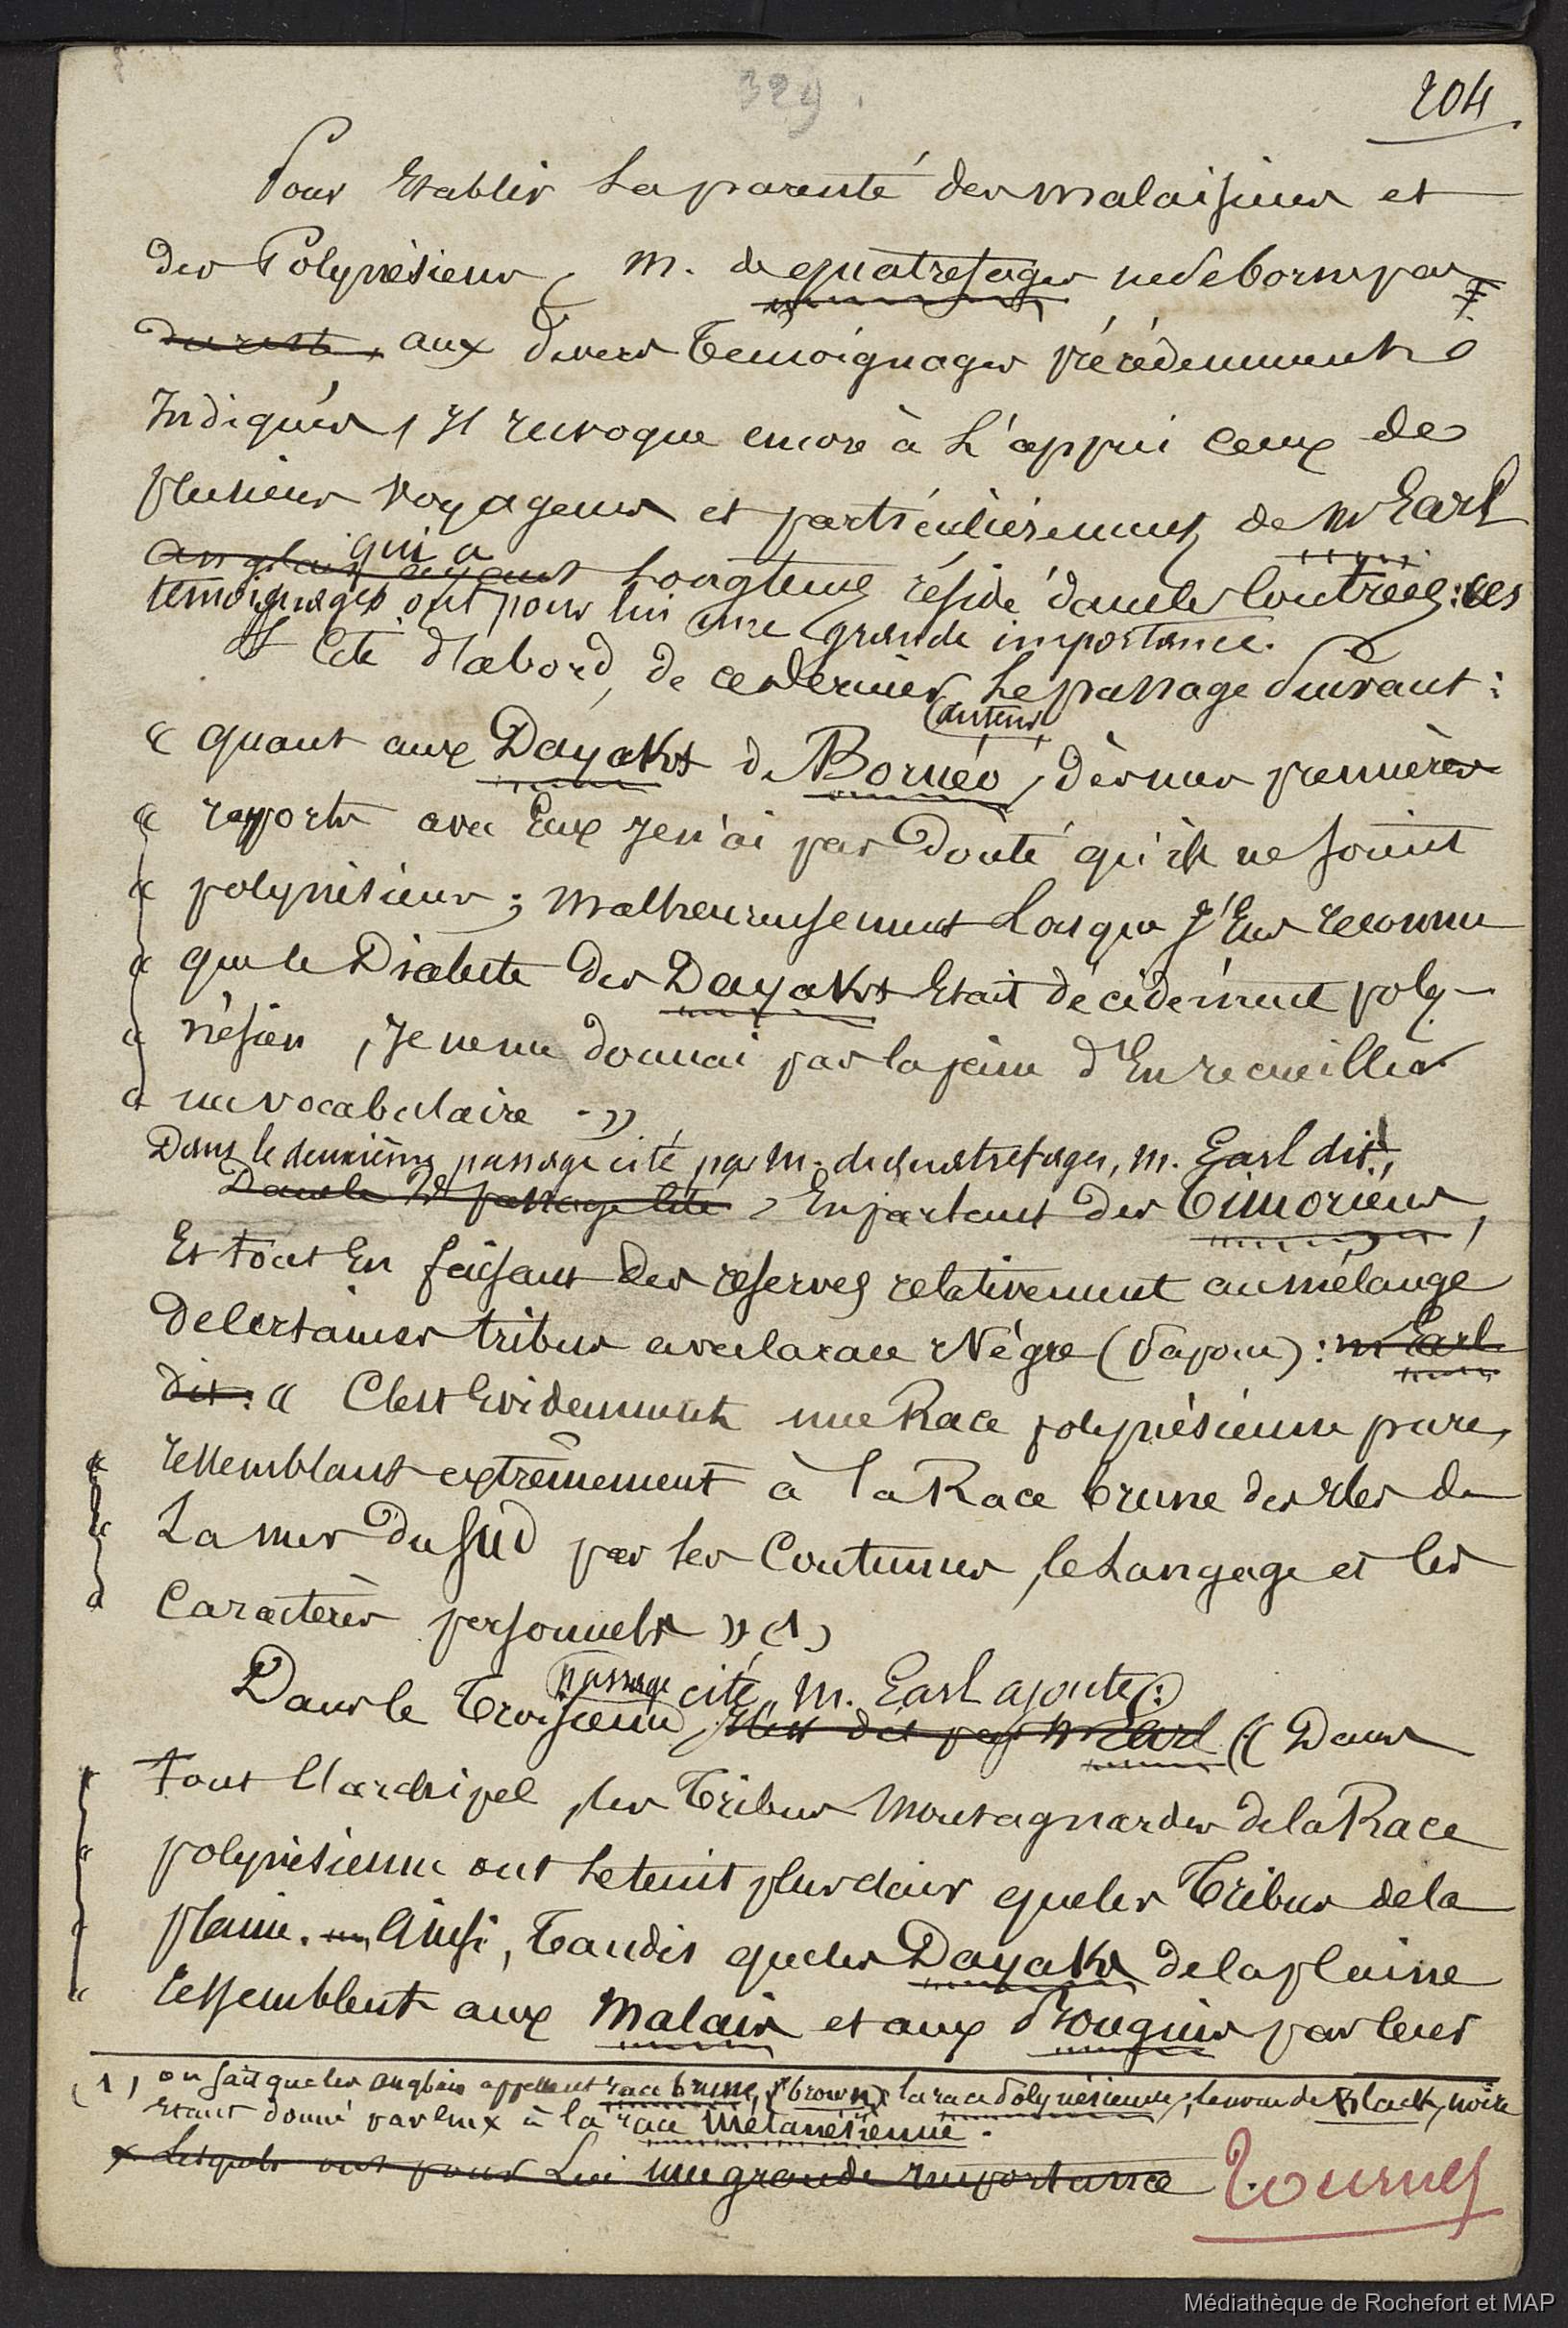 329.
204
Pour Etablir la parenté des malaisiens et
des Polynésiens, M. de quatrefages ne se borne pas
du reste, aux divers témoignages précédemment
Indiqués, Il invoque encore à l'appui ceux de
plusieurs voyageurs et particulièrement de M Earl
anglais ayant qui a longtems résidé dans les contrées: ces
témoignages ont pour lui une grande importance.
Il Cite d'abord, de ce dernier auteur, le passage suivant:
« quant aux Dayaks de Bornéo, dès mes premièrs
« rapports avec Eux je n'ai pas douté qu'ils ne soient
« polynésiens; malheureusement lorsque j'Eus reconnu
« que le Dialecte des Dayaks Etait décidément poly-
« nésien, je ne me donnai pas la peine d'En recueillir
« un vocabulaire.»
Dans le deuxième passage cité par M. de Quatrefages, M. Earl dit,
Dans le 2e passage Cité, En parlant des Timoriens,
Et tout En faisant des réserves relativement au mélange
de certaines tribus avec la race Nègre (Papou): M Earl
dit: « C'est Evidemment une Race polynésienne pure,
« ressemblant extrêmement à la Race brune des Iles de
« La mer du Sud par les Coutumes, le Langage et les
« Caractères personnels » (1)
Dans le Troisième passage cité, M. Earl ajoute: Il est dit par M Earl « Dans
« tout l'archipel, les Tribus Montagnardes de la Race
« polynésienne ont le teint plus clair que les Tribus de la
« plaine. Ainsi, Tandis que les Dayaks de la plaine
« ressemblent aux Malais et aux Bouguis par leur
(1) on sait que les anglais appellent race brune, (brown) la race Polynésienne; le nom de Black, noire
étant donné par eux à la race Mélanésienne.
x Lesquels ont pour Lui une grande importance
Tournez
Médiathèque de Rochefort et MAP